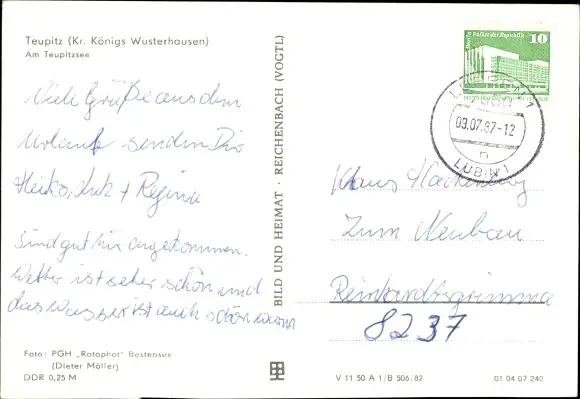 Teupitz (Kr. Königs Wusterhausen)
Am Teupitzsee
Viele Grüße aus dem
Urlaub senden Dir
Heiko, Lutz + Regina
Sind gut hier angekommen.
Wetter ist sehr schön und
das Wasser ist auch schön warm
Foto: PGH „Rotophot" Bestensee
(Dieter Möller)
DDR 0,25 M
BILD UND HEIMAT · REICHENBACH (VOGTL)
10
Palast der Republik
09.07.87-12
n
LUBIN 1
Klaus Hackenberg
Zum Neubau
Reinhardtsgrimma
8237
V 11 50 A 1/B 506/82
01 04 07 240